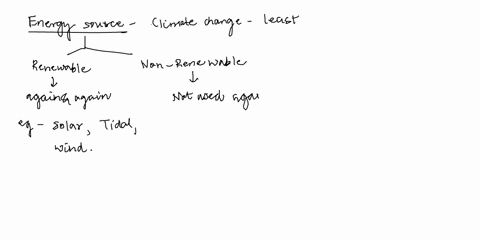 Energy source - Climate change - least
Renewable Non-Renewable
again & again Not used agai
eg - Solar, Tidal,
wind.